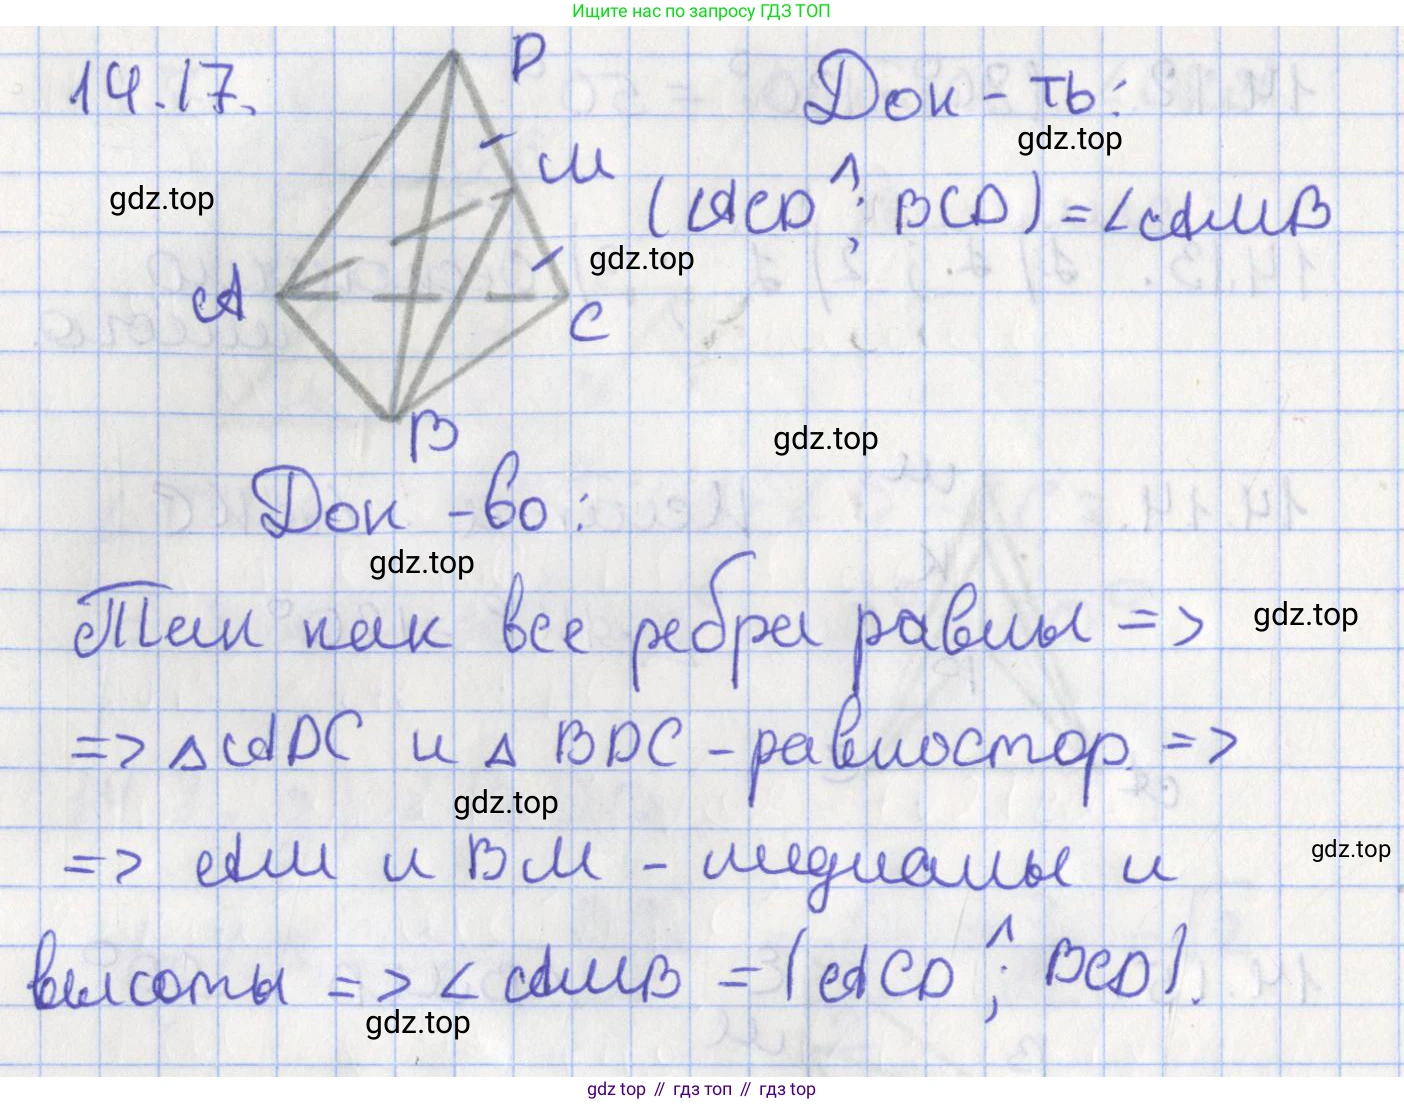 Ищите нас по запросу ГДЗ ТОП
14.17.
D
Док-ть:
gdz.top
M
gdz.top
(ACD ^; BCD) = ∠AMB
gdz.top
A
C
B
gdz.top
Док-во:
gdz.top
Так как все ребра равны =>
gdz.top
=> △ADC и △BDC - равностор. =>
gdz.top
=> AM и BM - медианы и
gdz.top
высоты => ∠AMB = (ACD ^; BCD).
gdz.top
gdz top // гдз топ // гдз top